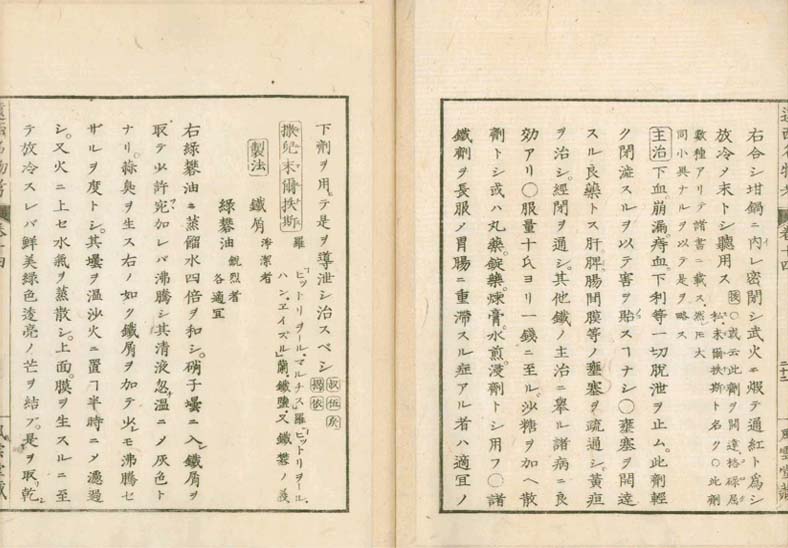 右合シ坩鍋ニ内レ密閉シ武火ニ煆テ通紅ト爲シ
放冷メ末トシ聽用ス
○或云此劑ヲ開達
名ク○此劑
數種アリテ諸書ニ載ス
大
同小異ナルヲ以テ是ヲ略ス
主治 下血、崩漏、痔血、下利等一切脫泄ヲ止ム。此劑輕
ク閉澁スルヲ以テ害ヲ貽スヿナシ○壅塞ヲ開達
スル良藥トス肝、脾、腸間膜等ノ壅塞ヲ疏通シ、黃疸
ヲ治シ、經閉ヲ通シ、其他鐵ノ主治ニ擧ル諸病ニ良
効アリ○服量十氏ヨリ一錢ニ至ル沙糖ヲ加ヘ散
劑トシ或ハ丸藥、錠藥、煉膏、水煎、浸劑トシ用フ○諸
鐵劑ヲ長服メ胃腸ニ重滯スル症アル者ハ適宜ノ
遠西名物考
卷十四
二十二
風雲堂藏
下劑ヲ用テ是ヲ導泄シ治スベシ
撒兒末爾扶斯 羅
ビットリヲール、マルチス 羅 ビットリヲール、
ハン、ヱイズル 蘭 鐵鹽又鐵礬ノ義
製法 鐵屑 淨潔者
綠礬油 銳烈者 各適宜
右綠礬油ニ蒸餾水四倍ヲ和シ、硝子壜ニ入レ鐵屑ヲ
取テ少許宛加レバ沸騰シ其淸液忽溫ニメ灰色ト
ナリ、蒜臭ヲ生ス右ノ如ク鐵屑ヲ加テ少モ沸騰セ
ザルヲ度トシ、其壜ヲ溫沙火ニ置ヿ半時ニメ濾過
シ、又火ニ上セ水氣ヲ蒸散シ、上面ニ膜ヲ生スルニ至
テ放冷スレバ鮮美綠色透亮ノ芒ヲ結ブ。是ヲ取乾
風雲堂藏